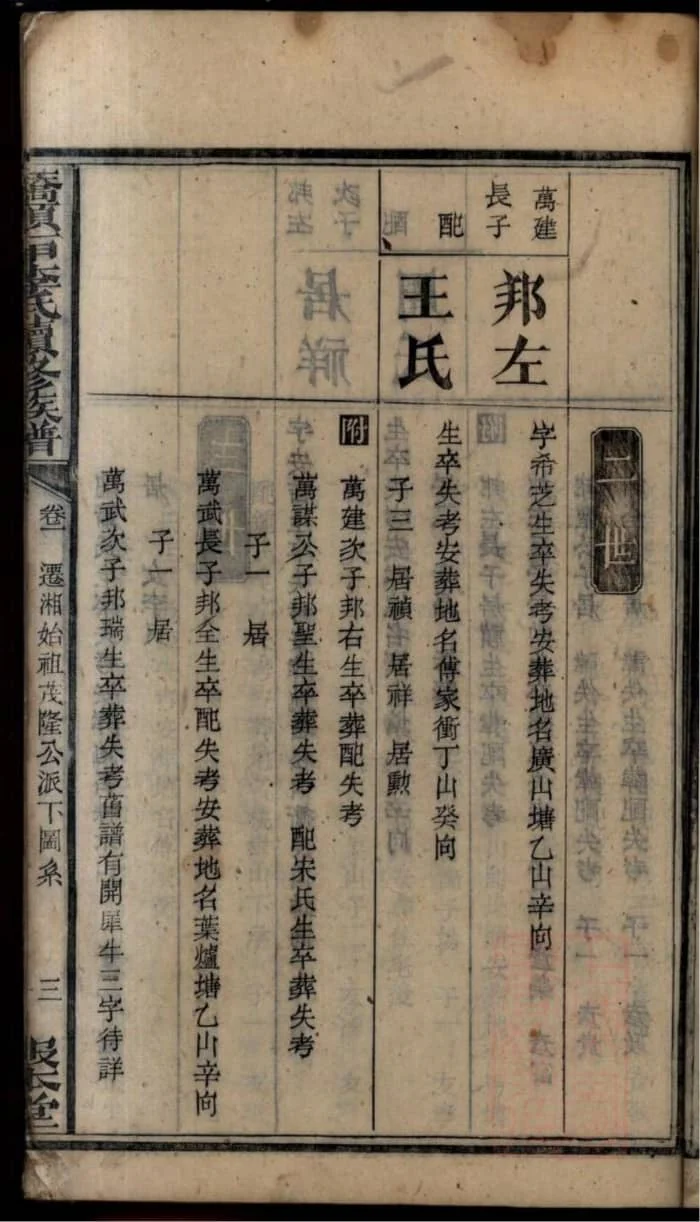 二世
萬建
長子
邦左
字希芝生卒失考安葬地名廣山塘乙山辛向
配
王氏
生卒失考安葬地名傅家衝丁山癸向
子三 居禎 居祥 居勳
附 萬建次子邦右生卒葬配失考
萬謀公子邦聖生卒葬失考 配宋氏生卒葬失考
子一 居
萬武長子邦全生卒配失考安葬地名葉爐塘乙山辛向
子一 居
萬武次子邦瑞生卒葬失考舊譜有開犀牛三字待詳
氏續修族譜
卷一
遷湘始祖茂隆公派下圖系
三
堂